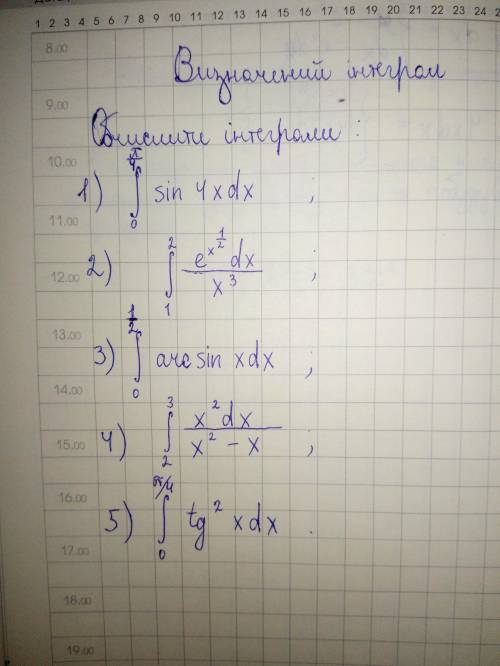 1 2 3 4 5 6 7 8 9 10 11 12 13 14 15 16 17 18 19 20 21 22 23 24
8.00
Визначений інтеграл
9.00
Обчислити інтеграли:
10.00
1) ∫₀^{π/4} sin 4x dx ;
11.00
2) ∫₁² e^{x^{1/2}} dx / x³ ;
12.00
13.00
3) ∫₀^{1/2} arcsin x dx ;
14.00
4) ∫₂³ x² dx / (x² - x) ;
15.00
16.00
5) ∫₀^{π/4} tg² x dx .
17.00
18.00
19.00